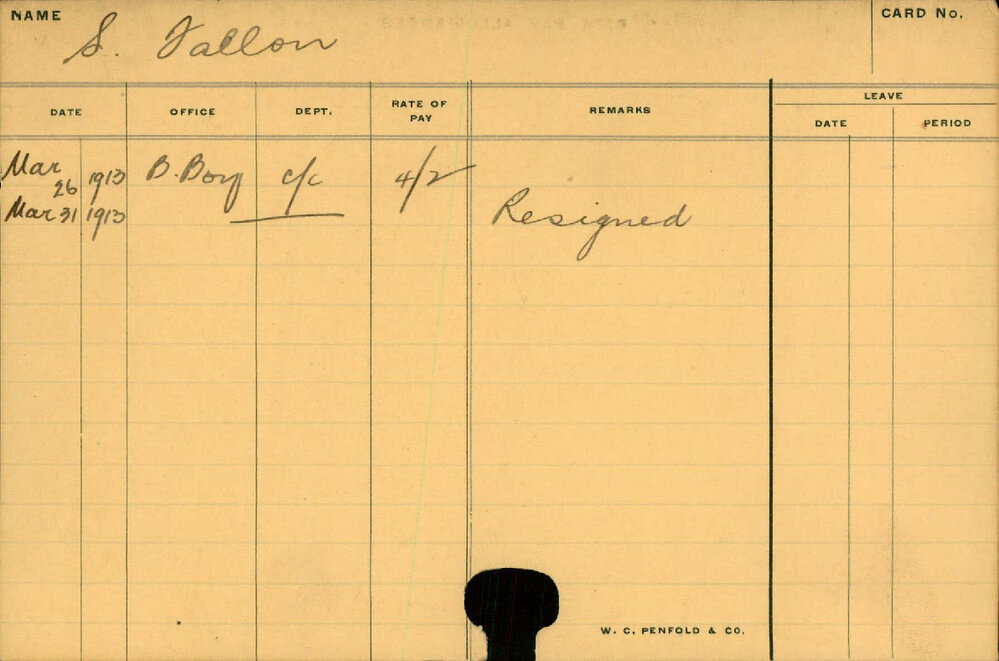 NAME
S. Fallon
CARD No.
DATE OFFICE DEPT. RATE OF PAY REMARKS LEAVE
DATE PERIOD
Mar 26 1913 B. Boy c/c 4/2
Mar 31 1913 Resigned
W. C. PENFOLD & CO.